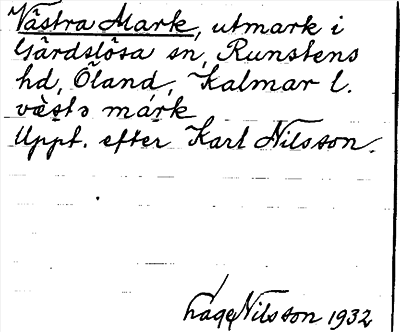 Västra Mark, utmark i
Gärdslösa sn, Runstens
hd, Öland, Kalmar l.
vȁstə márk
Uppt. efter Karl Nilsson.
Nilsson 1932